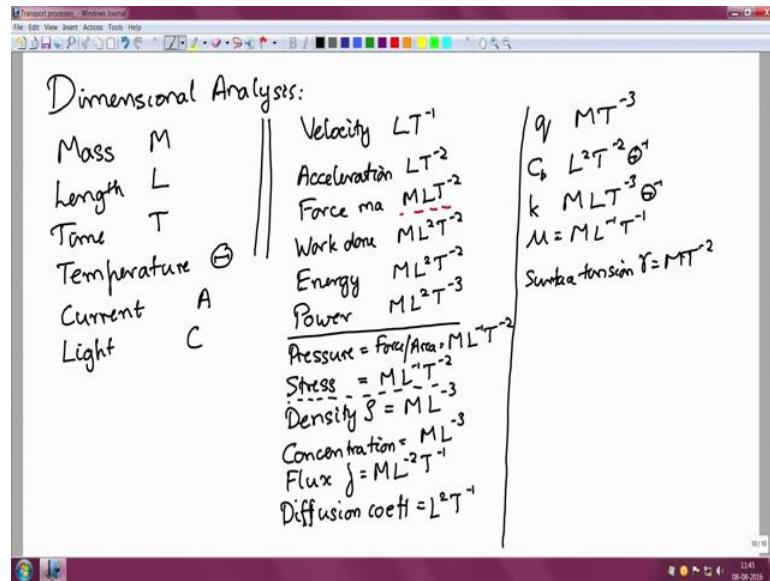 Transport processes_ - Windows Journal
File Edit View Insert Actions Tools Help
Dimensional Analysis:
Mass M
Length L
Time T
Temperature Θ
Current A
Light C
Velocity LT⁻¹
Acceleration LT⁻²
Force ma MLT⁻²
Work done ML²T⁻²
Energy ML²T⁻²
Power ML²T⁻³
Pressure = Force/Area = ML⁻¹T⁻²
Stress = ML⁻¹T⁻²
Density ρ = ML⁻³
Concentration = ML⁻³
Flux j = ML⁻²T⁻¹
Diffusion coeff = L²T⁻¹
q MT⁻³
Cₚ L²T⁻²Θ⁻¹
k MLT⁻³Θ⁻¹
μ = ML⁻¹T⁻¹
Surface tension γ = MT⁻²
10/10
11:45
08-08-2016